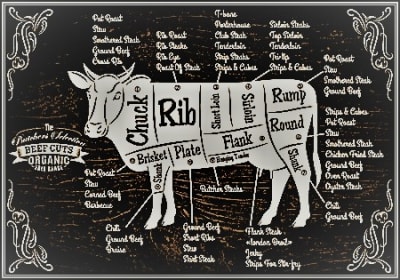 Pot Roast
Stew
Smothered Steak
Ground Beef
Cross Rib
Rib Roast
Rib Steaks
Rib Eye
Roast Of Steak
T-bone
Porterhouse
Club Steak
Tenderloin
Strip Steaks
Strips & Cubes
Sirloin Steaks
Top Sirloin
Tenderloin
Tri-Tip
Strips & Cubes
Pot Roast
Stew
Smothered Steak
Ground Beef
Chuck
Rib
Short Loin
Sirloin
Rump
Round
Brisket
Shank
Plate
Flank
Hanging Tender
Shank
The
BEEF CUTS
ORGANIC
FREE RANGE
Strips & Cubes
Pot Roast
Stew
Smothered Steak
Chicken Fried Steak
Ground Beef
Oven Roast
Oyster Steak
Pot Roast
Stew
Corned Beef
Barbecue
Butcher Steaks
Chili
Stew
Ground Beef
Chili
Ground Beef
Braise
Ground Beef
Short Ribs
Stew
Skirt Steak
Flank Steak
«london Broil»
Jerky
Strips For Stir-fry